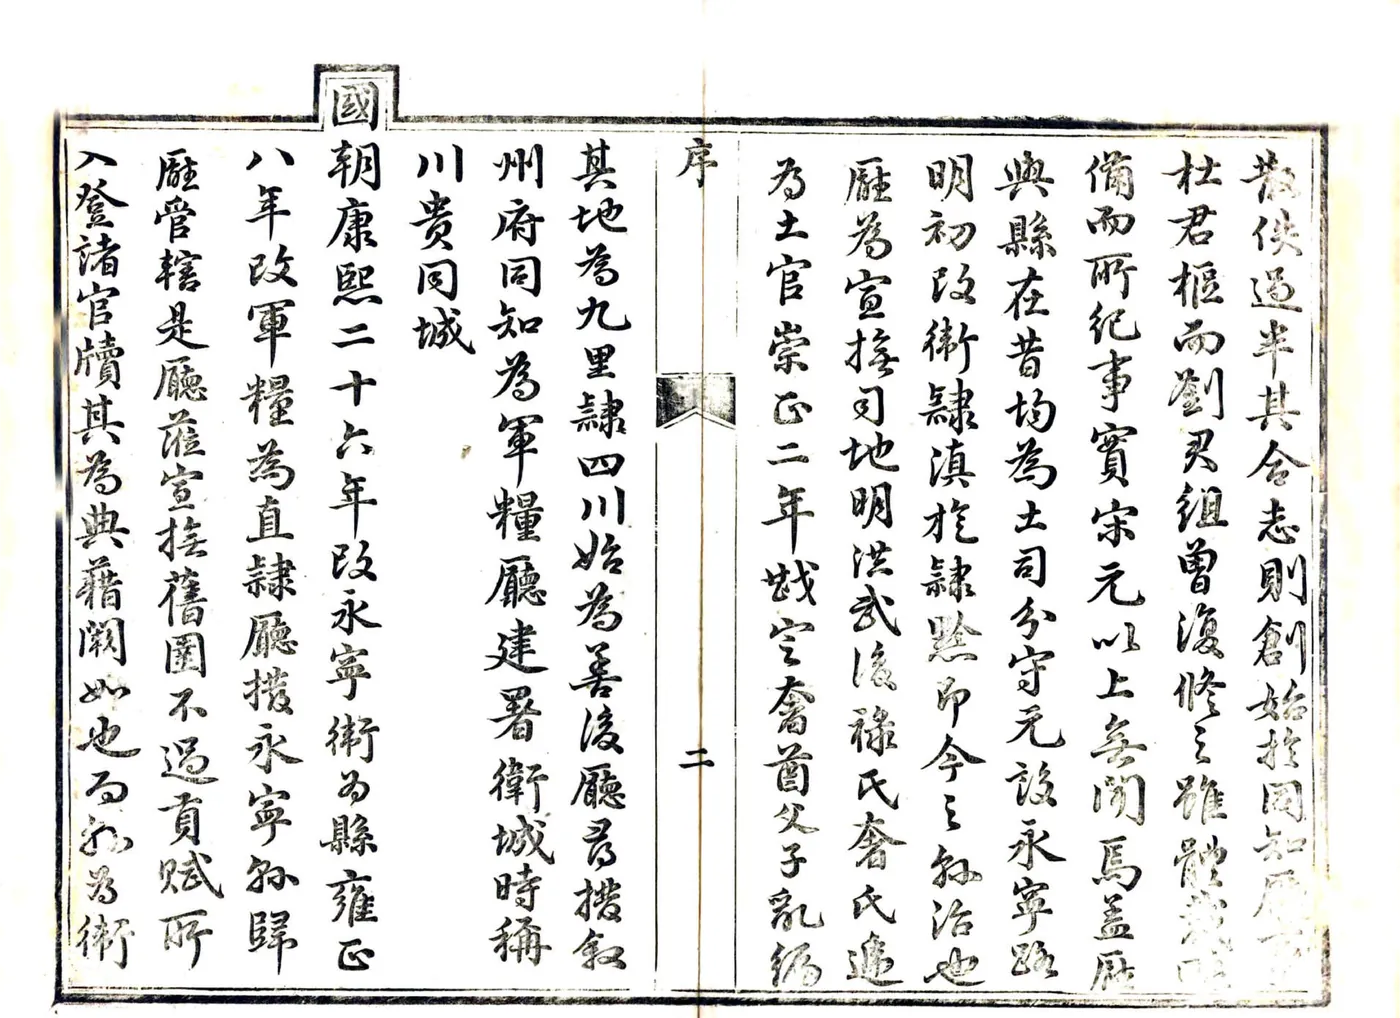 散佚過半其合志則創始於同知
杜君樞而劉君組曾復修之雖體裁略
備而所紀事實宋元以上無聞焉蓋廳
與縣在昔均為土司分守元設永寧路
明初改衛隸滇旋隸黔即今之縣治也
廳為宣撫司地明洪武後祿氏奢氏遞
為土官崇正二年戡定奢酋父子亂編
序
二
其地為九里隸四川始為善後廳尋撥敘
州府同知為軍糧廳建署衛城時稱
川貴同城
國朝康熙二十六年改永寧衛為縣雍正
八年改軍糧為直隸廳撥永寧縣歸
廳管轄是廳蒞宣撫舊圉不過貢賦所
入登諸官牘其為典藉闕如也而縣為衛